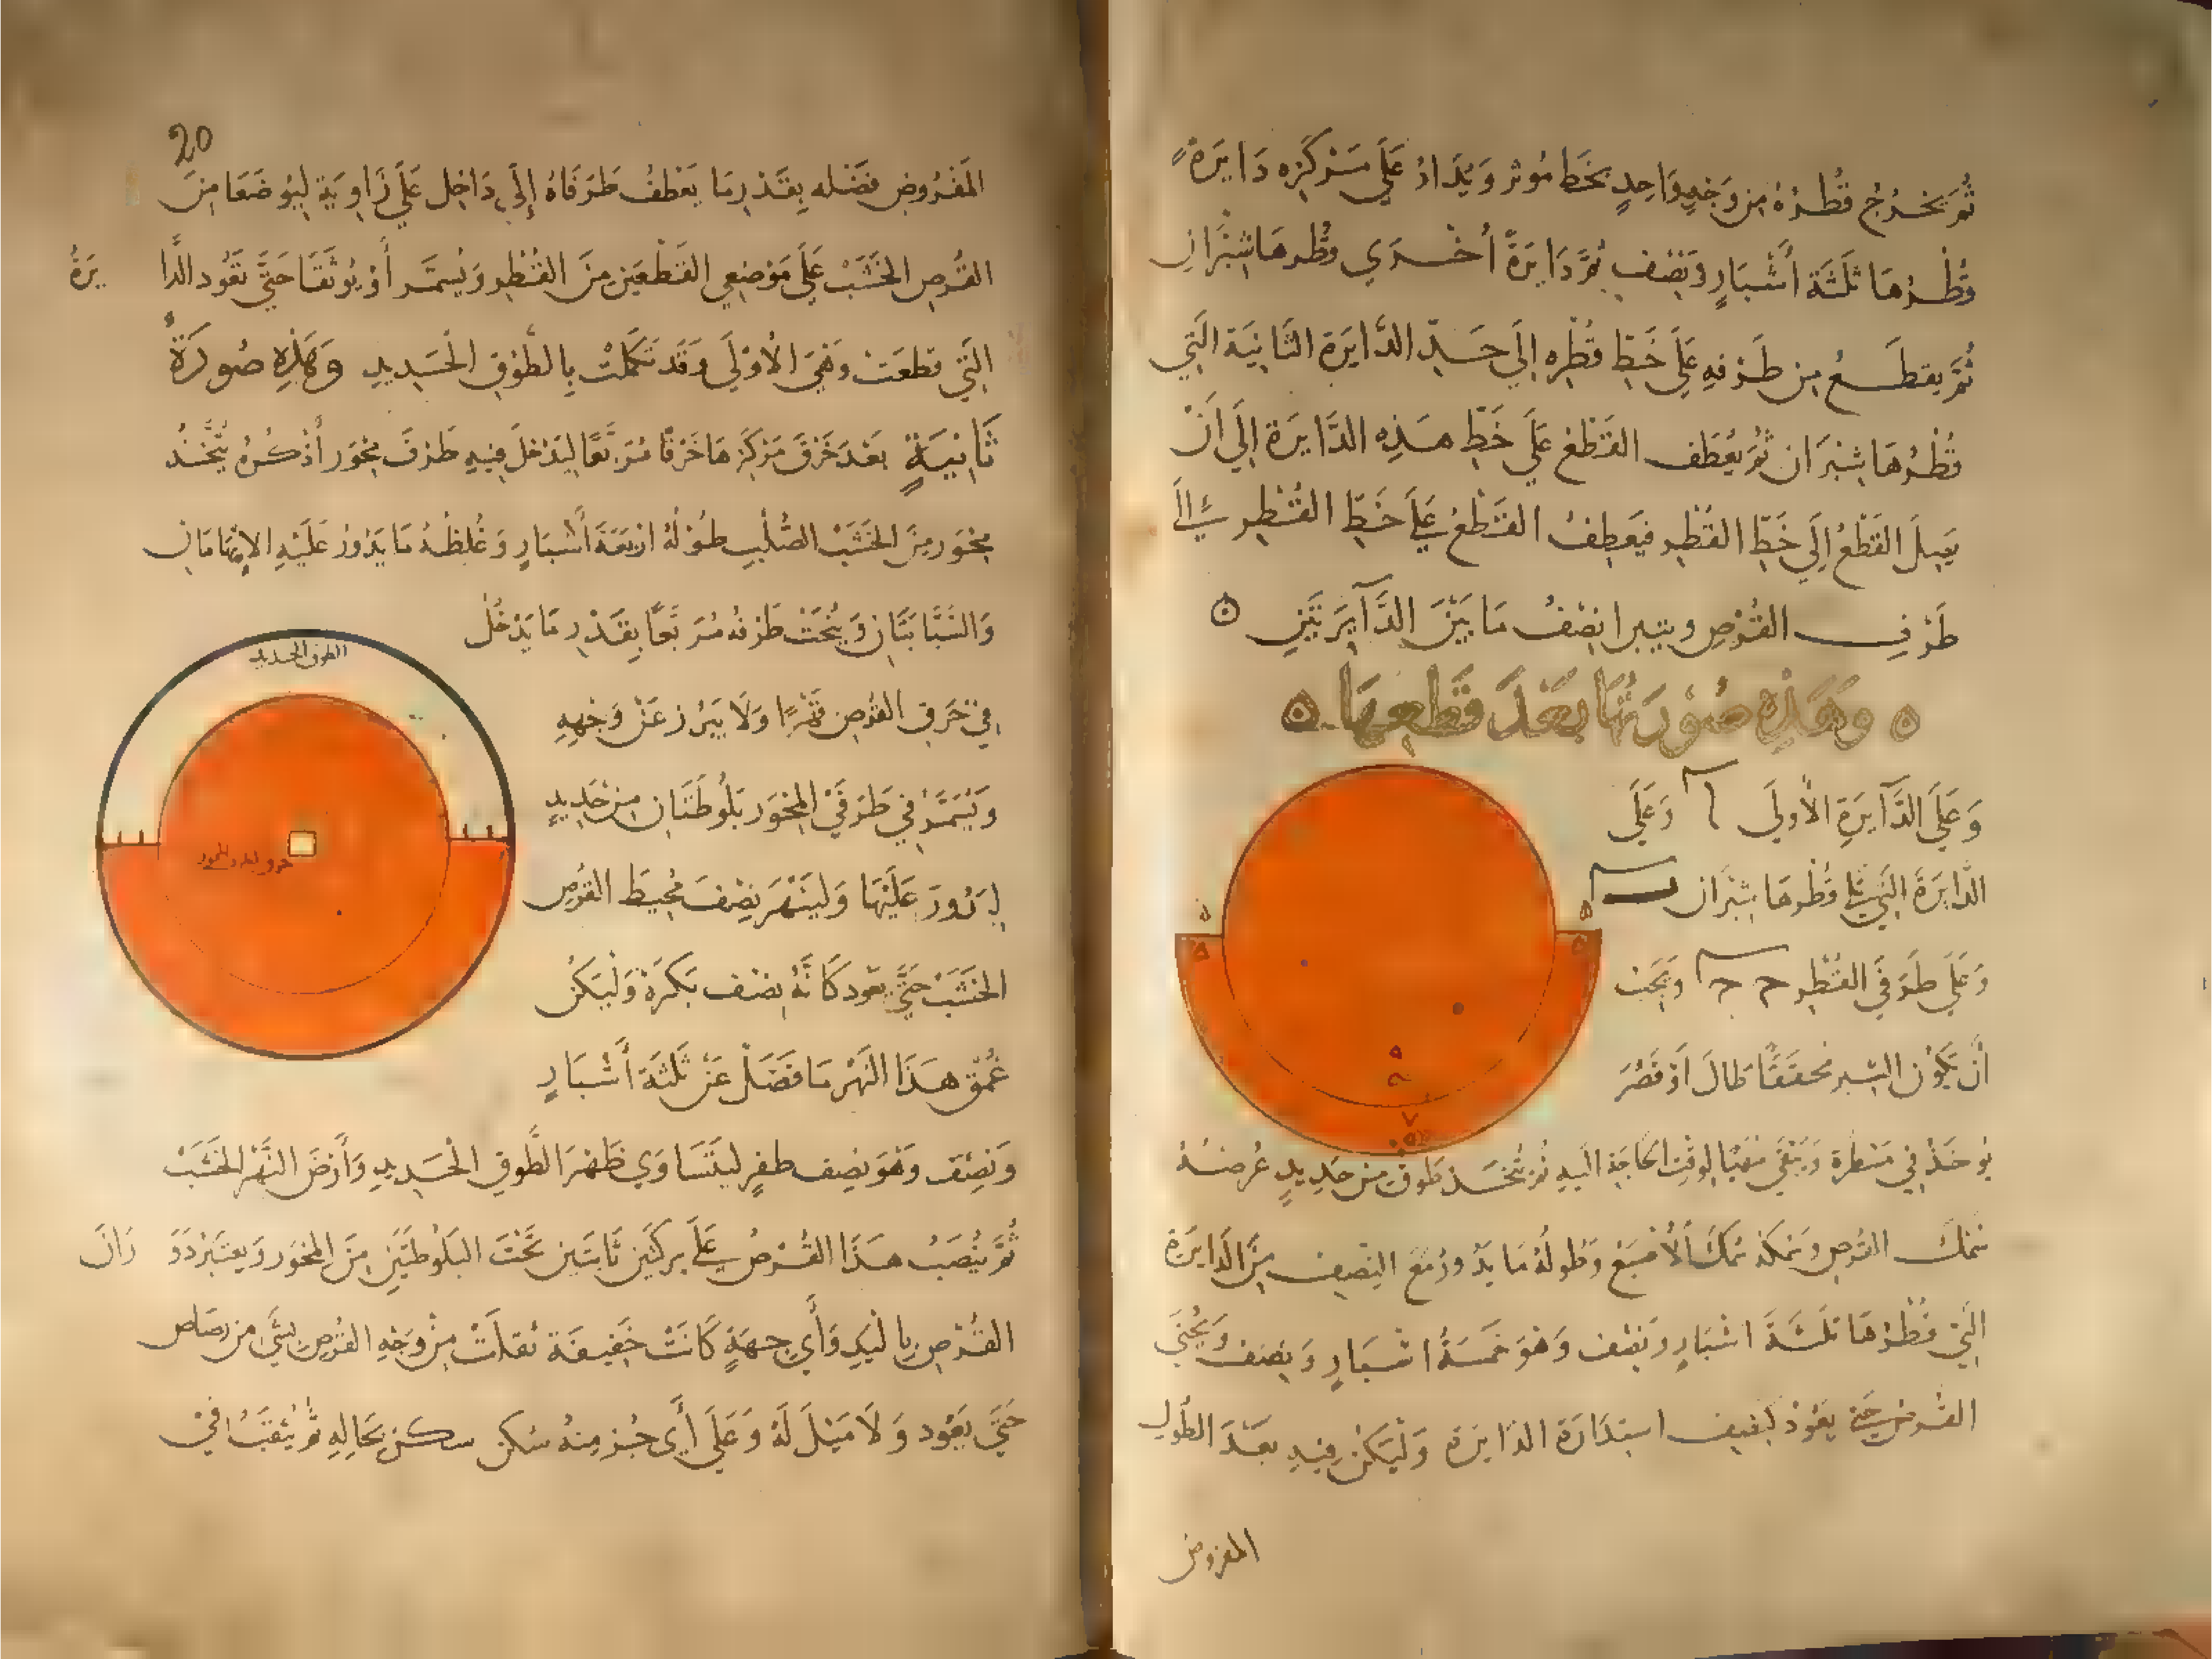 ثُمَّ يخرُجُ قُطْرُهُ مِن وَجْهٍ وَاحِدٍ بخَطٍ مُوثر وَيُدَارُ عَلَى مَرْكَزِه دَايرَةً
قُطْرُهَا ثَلَثَة أَشْبَارٍ وَنِصْف ثُمَّ دَايرَةً أُخْرَي قُطْرهَا شِبْرَانِ
ثُمَّ يقطَعُ مِن طَرَفِهِ عَلَى خَطِّ قُطْرِه إلَى حَدِّ الدَّايرَة الثَّانِيَة الَّتِي
قُطْرُهَا شِبْرَان ثُمَّ يُعْطَف القَطْع عَلَى خَطِّ هَذِه الدَّايرَة إلَى اَنْ
يَصِلَ القَطْعُ إلَى خَطِّ القُطْرِ فيَعطِفُ القَطْعُ عَلَى خَطِّ القُطْرِ إلَى
طَرَفِ القُرْصِ نِصْفُ مَا بَيْنَ الدَّآيرَتَيْنِ
وَهَذِهِ صُوْرَتُهَا بَعْدَ قَطْعِهَا
وَعَلَى الدَّآيرَةِ الأُولَى ا وَعَلَى
الدَّايرَة الَّتِي قُطْرهَا شِبْرَان ب
وَعَلَى طَرَفَي القُطْرِ ح ح وَيَجِبُ
أَنْ يَكُوْنَ الشِّبر مُحققًا طَالَ أَوْ قَصُرَ
يُوخَذُ فِي مَسْطَرة وَيَبْقَى لوقتِ الحَاجَةِ اليهِ ثم يُتخَذ طَوْق مِن حَدِيدٍ عُرضُهُ
سُمْك القُرصِ وَسُمكهُ سُمْك الأُصْبَع وَطُولُهُ مَا يَدُورُ مَعَ النِّصف مِنَ الدَّايرَة
الَّتِي قُطْرُهَا ثَلَثَة اشبَارٍ وَنِصْف وَهُوَ خَمسَةُ اشْبَارٍ وَنِصْف وَيُحْنَى
حَتَّى يَعُودَ لنِصْف اسْتِدَارَة الدَّايرَة وَلْيَكُن فِيهِ بَعْدَ الطُّولِ
المفروض
20
المَفْرُوضِ فَضْلَه بِقَدْرِ مَا يَعْطفُ طَرَفَاهُ إلَى دَاخِل عَلَى زَاوِيَةٍ لِيُوضَعَا مِنَ
القُرصِ الخَشَبْ عَلَى مَوْضِعي القَطْعَيْن مِنَ القُطْرِ وَيُسمَّر أَوْ يُوثَقَا حَتَّى تَعُود الدَّا يرَةُ
الَّتِي قطعَتْ وَهِيَ الأُوْلَى وَقَد تَكَمَّلَتْ بِالطَّوْقِ الحَدِيدِ وَهَذِهِ صُورَةٌ
ثَانِيَةٌ بَعْدَ خَرْقِ مَرْكَزهَا خَرْقًا مُرَبَّعًا لِيَدْخلَ فِيهِ طَرَفَ مِحْوَر أَذْكُرُهُ يُتَّخَذُ
مِحْوَر مِنَ الخَشَبْ الصُّلْبِ طُوْلُهُ ارْبَعَةَ أَشْبَارٍ وَغُلظُهُ مَا يَدُورُ عَلَيْهِ الابهَامَانِ
وَالسَّبَّابَتَانِ وَيُنْحَتْ طَرَفُه مُرَبَّعًا بِقَدْرِ مَا يَدْخُلُ
فِي خَرقِ القُرصِ قَهْرًا وَلَا يَبرُز عَنْ وَجْهِهِ
وَيُسَمَّر فِي طَرَفَيْ المِحْوَر بَلُوطَتَانِ مِنْ حَدِيدٍ
لِيَدُورَ عَلَيْهَا وَليُنْهَر نِصْفَ مُحِيطَ القُرْصِ
الخَشَبْ حَتَّى يَعُود كَأَنَّهُ نِصْف بَكَرَةْ وَلْيَكُنْ
عُمْق هَذَا النَّهْر مَا فَضَلْ عَنْ ثَلثَة أَشْبَارٍ
وَنِصْف وَهُوَ نِصْف ظفرٍ ليَتَسَاوَي ظَهْرَ الطَّوق الحَدِيدِ وَأَرْضَ النَّهْر الخَشَبْ
ثُمَّ يُنْصَبُ هَذَا القُرْصُ عَلَى بركَتَين ثَابتَين تَحْتَ البَلُوطَتَيْنِ مِنَ المِحْوَر وَيعتَبر دَوَ رَانَ
القُرْصِ بِاليَدِ وَأَي جِهَةٍ كَانَتْ خَفِيفَة ثقلَتْ مِنْ وَجْهِ القُرْصِ بِشَيْ مِن رصَاص
حَتَّى يَعُود وَلَا مَيْلَ لَهُ وَعَلَى أَي جُز مِنهُ سُكن سكن بِحَالِهِ ثُمَّ يُثْقَبُ فِي
الطوق الحديد